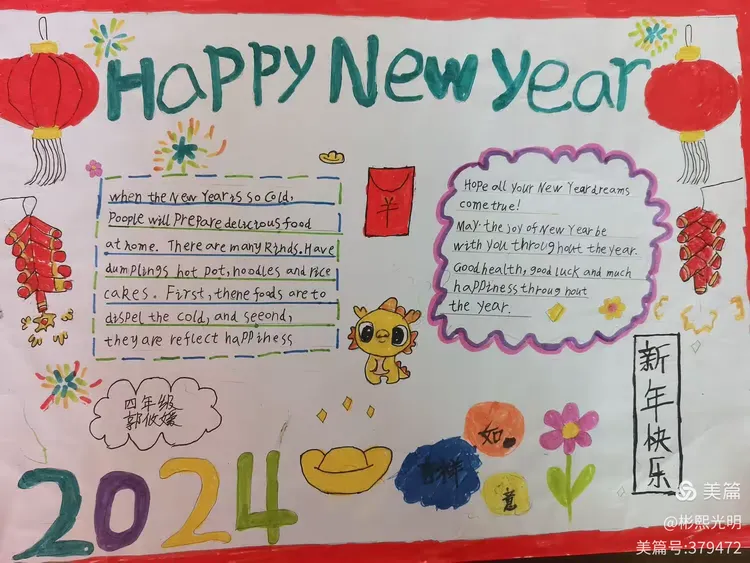 Happy New Year
when the New Year is so cold,
Poople will prepare delicious food
at home. There are many Rinds. Have
dumplings hot pot, noodles and rice
cakes. First, thene foods are to
dispel the cold, and seeond,
they are reflect happiness
Hope all your New Year dreams
come true!
May the joy of New Year be
with you throughout the year.
Good health, good luck and much
happiness throughout
the year.
四年级
新年快乐
2024
吉祥
如
意
美篇
@彬熙光明
美篇号:379472